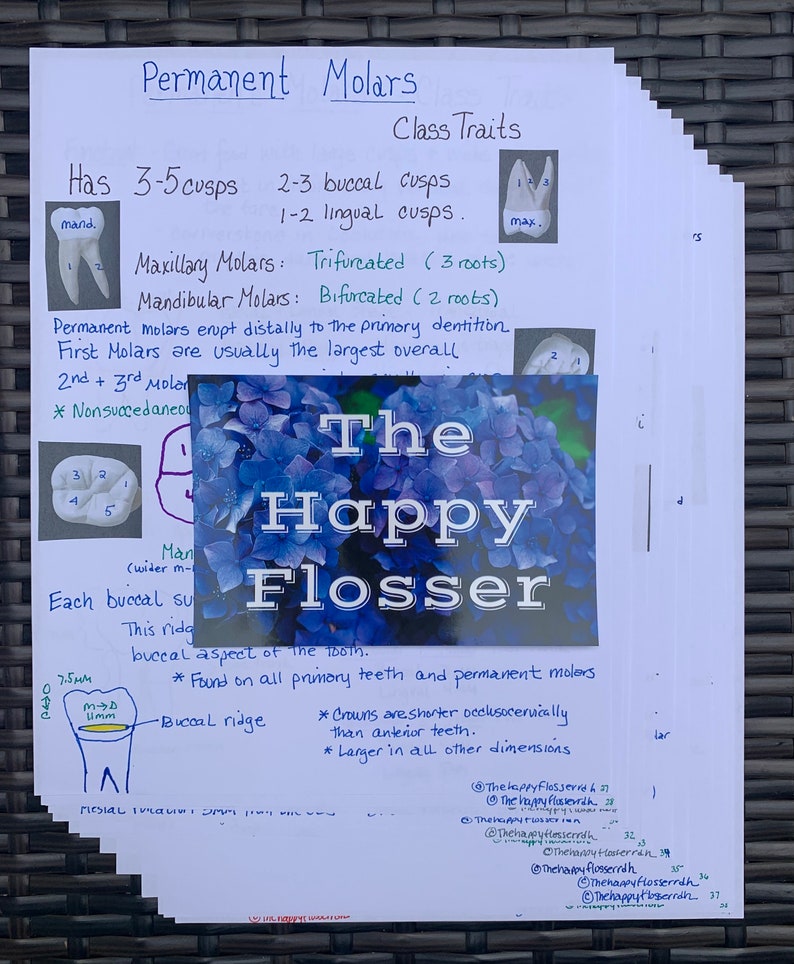 Permanent Molars
Class Traits
Has 3-5 cusps 2-3 buccal cusps
1-2 lingual cusps.
1 2 3
max.
mand.
1 2
Maxillary Molars: Trifurcated (3 roots)
Mandibular Molars: Bifurcated (2 roots)
Permanent molars erupt distally to the primary dentition
First Molars are usually the largest overall
2 1
2nd + 3rd Molar
* Nonsuccedaneou
The
Happy
Flosser
3 2 1
4 5
1
Man
(wider m-
Each buccal su
This ridg
buccal aspect of the tooth.
* Found on all primary teeth and permanent molars
7.5mm
O C
M→D
11mm
Buccal ridge
* Crowns are shorter occlusocervically
than anterior teeth.
* Larger in all other dimensions
©Thehappyflosserrdh 27
©Thehappyflosserrdh 28
©Thehappyflosserrdh 32
33
©Thehappyflosserrdh 34
©Thehappyflosserrdh 35
©Thehappyflosserrdh 36
©Thehappyflosserrdh 37
©Thehappyflosserrdh
rs
d
lar